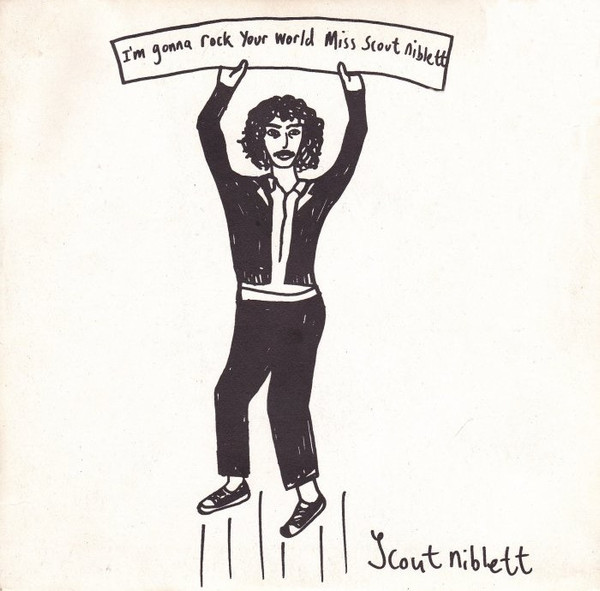 I'm gonna rock Your world Miss Scout niblett
Scout niblett